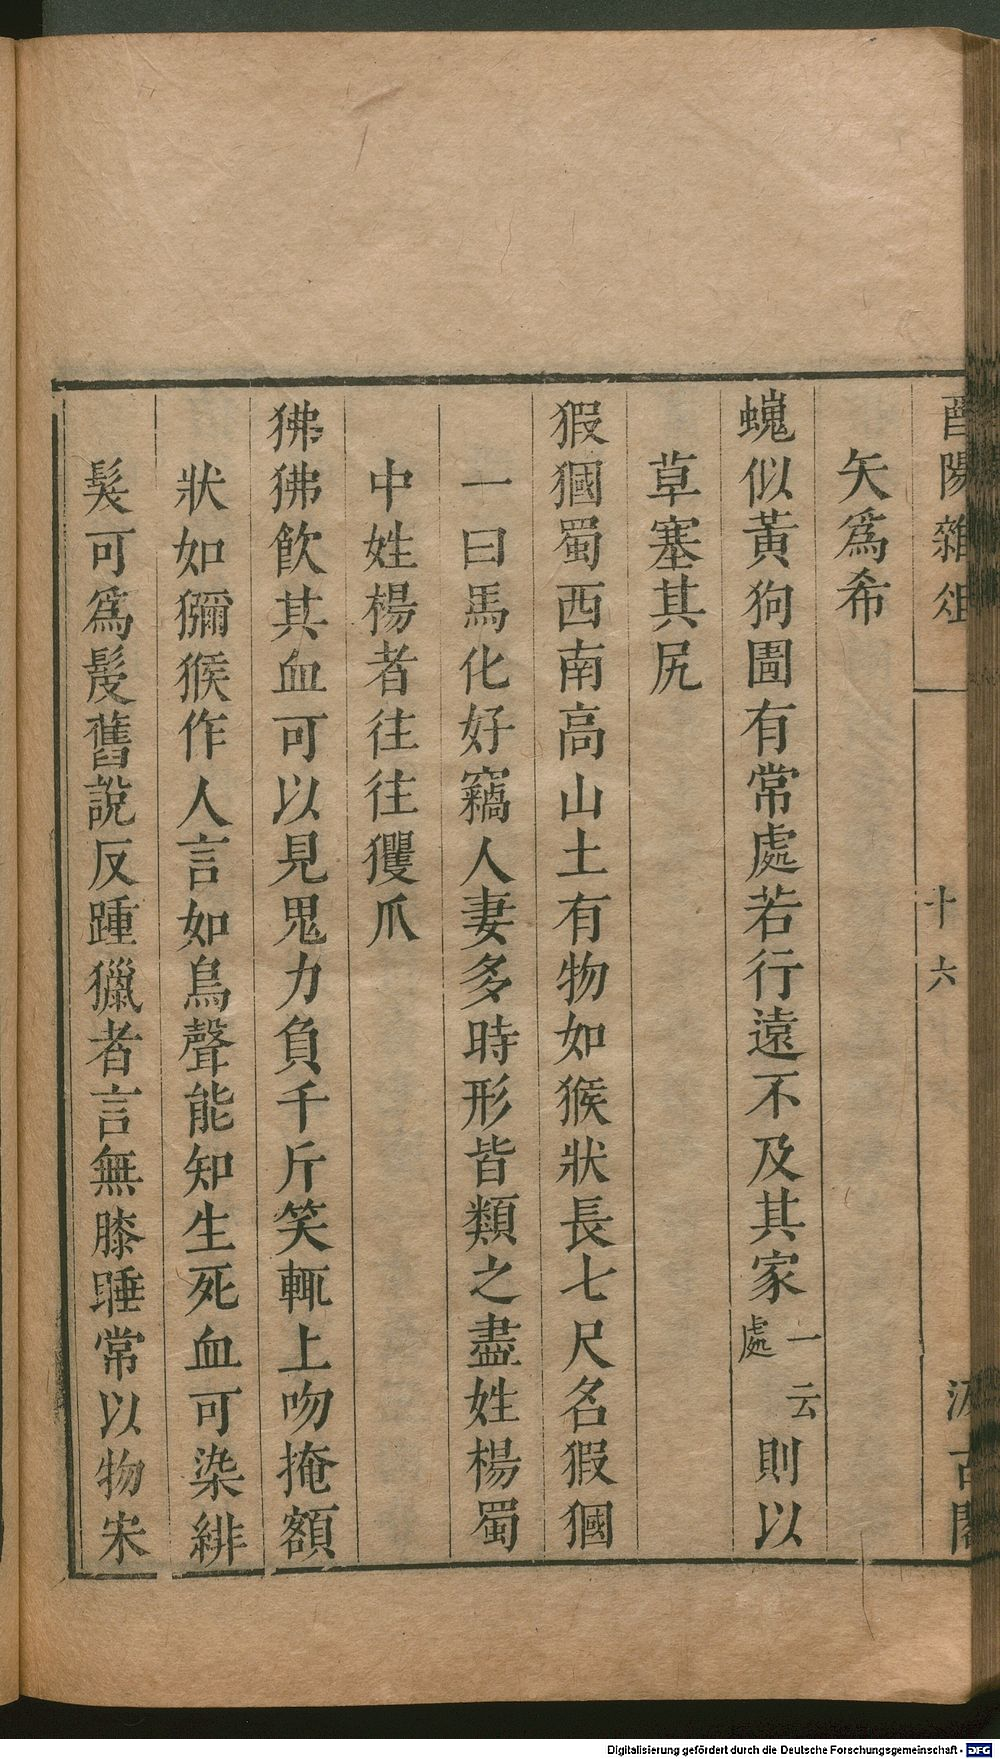 酉陽雜俎 十六 汲古閣
矢爲希
螝似黃狗圊有常處若行遠不及其家一云處則以
草塞其尻
猳㹢蜀西南高山土有物如猴狀長七尺名猳㹢
一曰馬化好竊人妻多時形皆類之盡姓楊蜀
中姓楊者往往玃爪
狒狒飲其血可以見鬼力負千斤笑輒上吻掩額
狀如獼猴作人言如鳥聲能知生死血可染緋
髮可爲髲舊說反踵獵者言無膝睡常以物宋
Digitalisierung gefördert durch die Deutsche Forschungsgemeinschaft - DFG